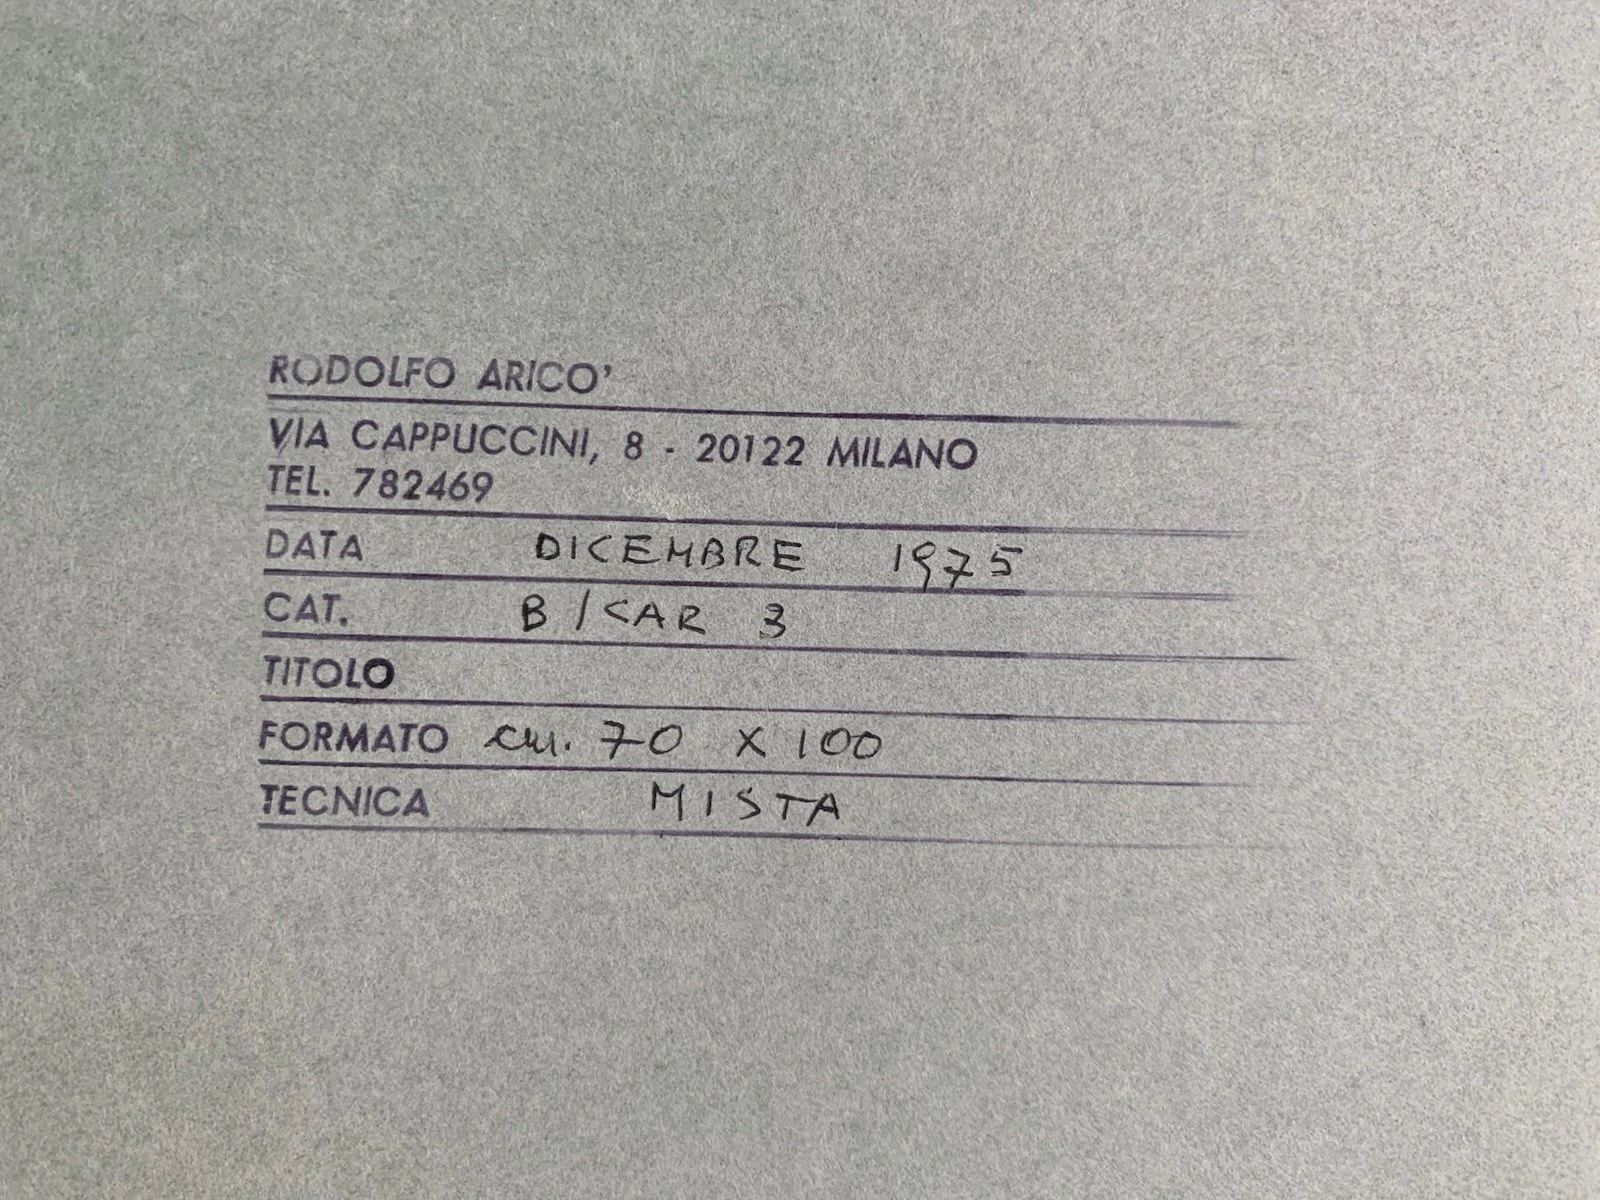 RODOLFO ARICO'
VIA CAPPUCCINI, 8 - 20122 MILANO
TEL. 782469
DATA DICEMBRE 1975
CAT. B/CAR 3
TITOLO
FORMATO cm. 70 X 100
TECNICA MISTA